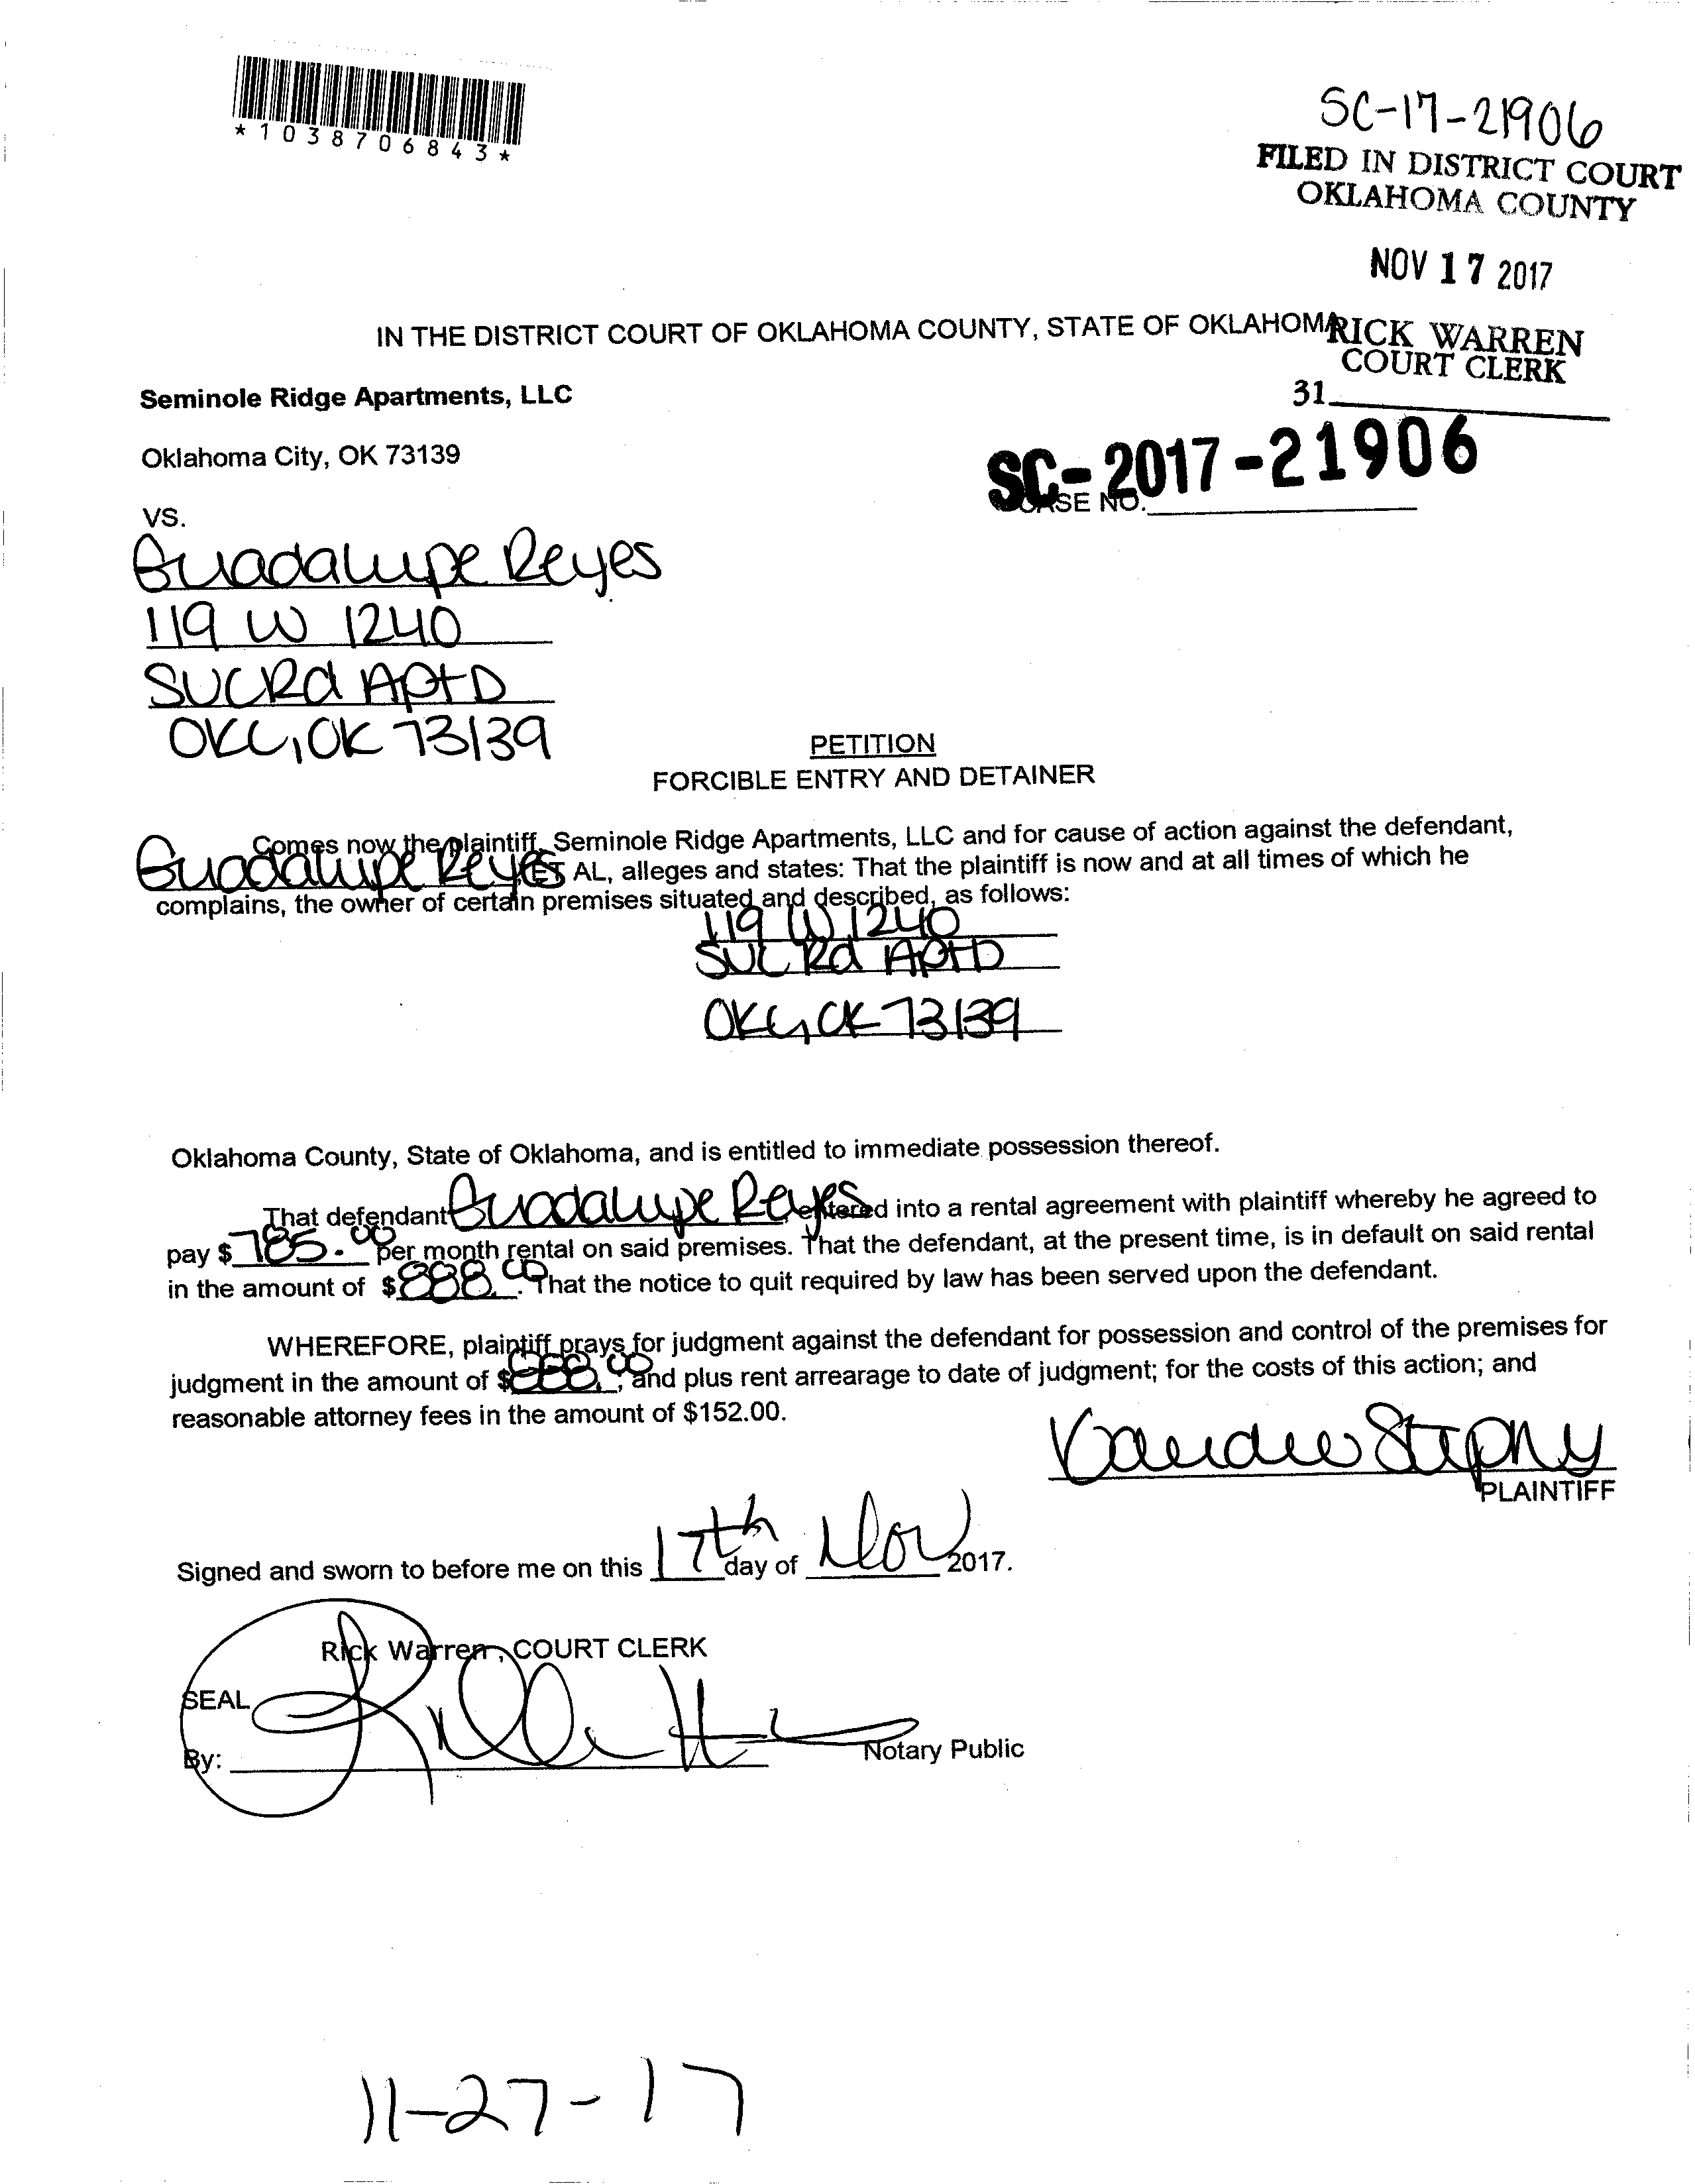 *1038706843*
SC-17-21906
FILED IN DISTRICT COURT
OKLAHOMA COUNTY
NOV 17 2017
IN THE DISTRICT COURT OF OKLAHOMA COUNTY, STATE OF OKLAHOMA
RICK WARREN
COURT CLERK
31
Seminole Ridge Apartments, LLC
Oklahoma City, OK 73139
SC-2017-21906
CASE NO.
VS.
Guadalupe Reyes
119 W 1240
SW Rd Apt D
OKC, OK 73139
PETITION
FORCIBLE ENTRY AND DETAINER
Comes now the plaintiff, Seminole Ridge Apartments, LLC and for cause of action against the defendant,
Guadalupe Reyes, ET AL, alleges and states: That the plaintiff is now and at all times of which he
complains, the owner of certain premises situated and described, as follows:
119 W 1240
Rd Apt D
OKC, OK 73139
Oklahoma County, State of Oklahoma, and is entitled to immediate possession thereof.
That defendant Guadalupe Reyes, entered into a rental agreement with plaintiff whereby he agreed to
pay $ 785.00 per month rental on said premises. That the defendant, at the present time, is in default on said rental
in the amount of $888.00. That the notice to quit required by law has been served upon the defendant.
WHEREFORE, plaintiff prays for judgment against the defendant for possession and control of the premises for
judgment in the amount of $888.00, and plus rent arrearage to date of judgment; for the costs of this action; and
reasonable attorney fees in the amount of $152.00.
PLAINTIFF
Signed and sworn to before me on this 17th day of Nov 2017.
Rick Warren, COURT CLERK
SEAL
By:
Notary Public
11-27-17